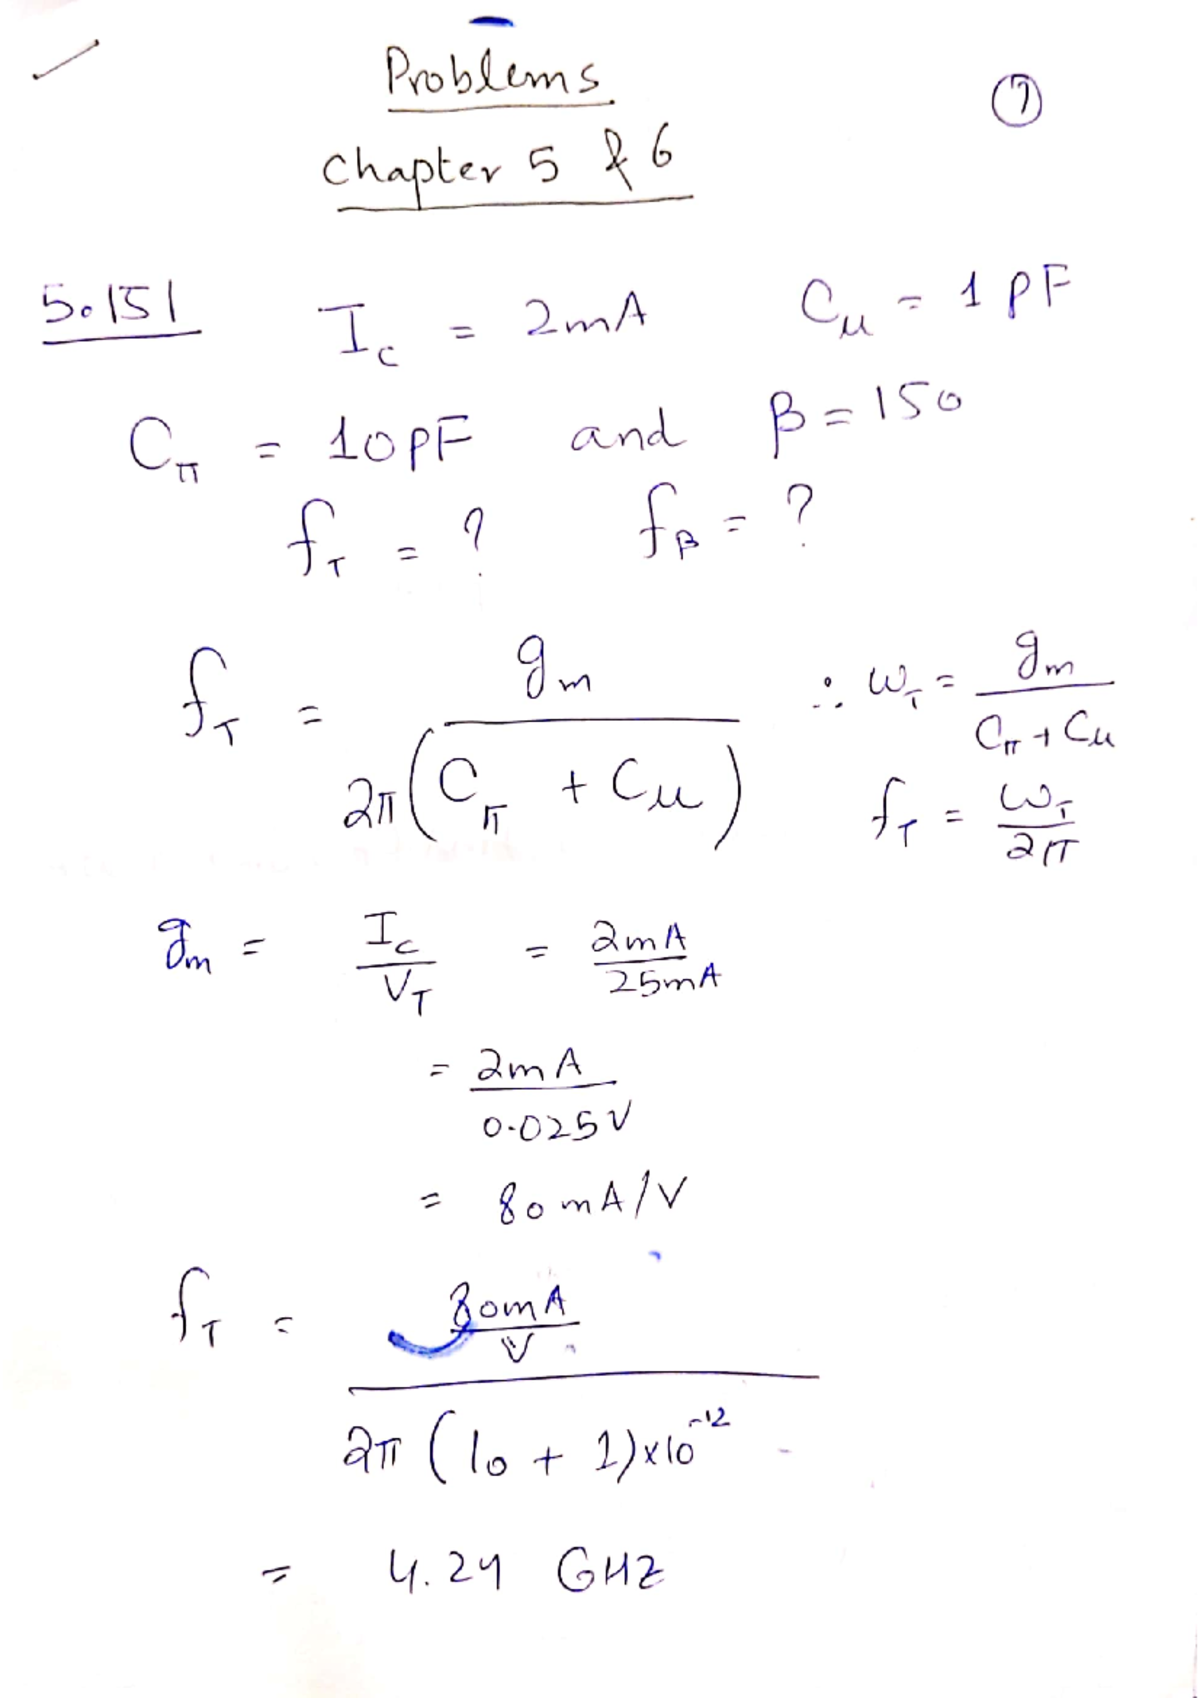 Problems
Chapter 5 & 6
7
5.151 I_C = 2mA C_μ = 1 pF
C_π = 10pF and β = 150
f_T = ? f_β = ?
f_T = g_m / 2π(C_π + C_μ) ∴ ω_T = g_m / C_π + C_μ
f_T = ω_T / 2π
g_m = I_C / V_T = 2mA / 25mA
= 2mA / 0.025V
= 80mA/V
f_T = 80mA/V / 2π (10 + 1)x10^-12
= 4.24 GHZ